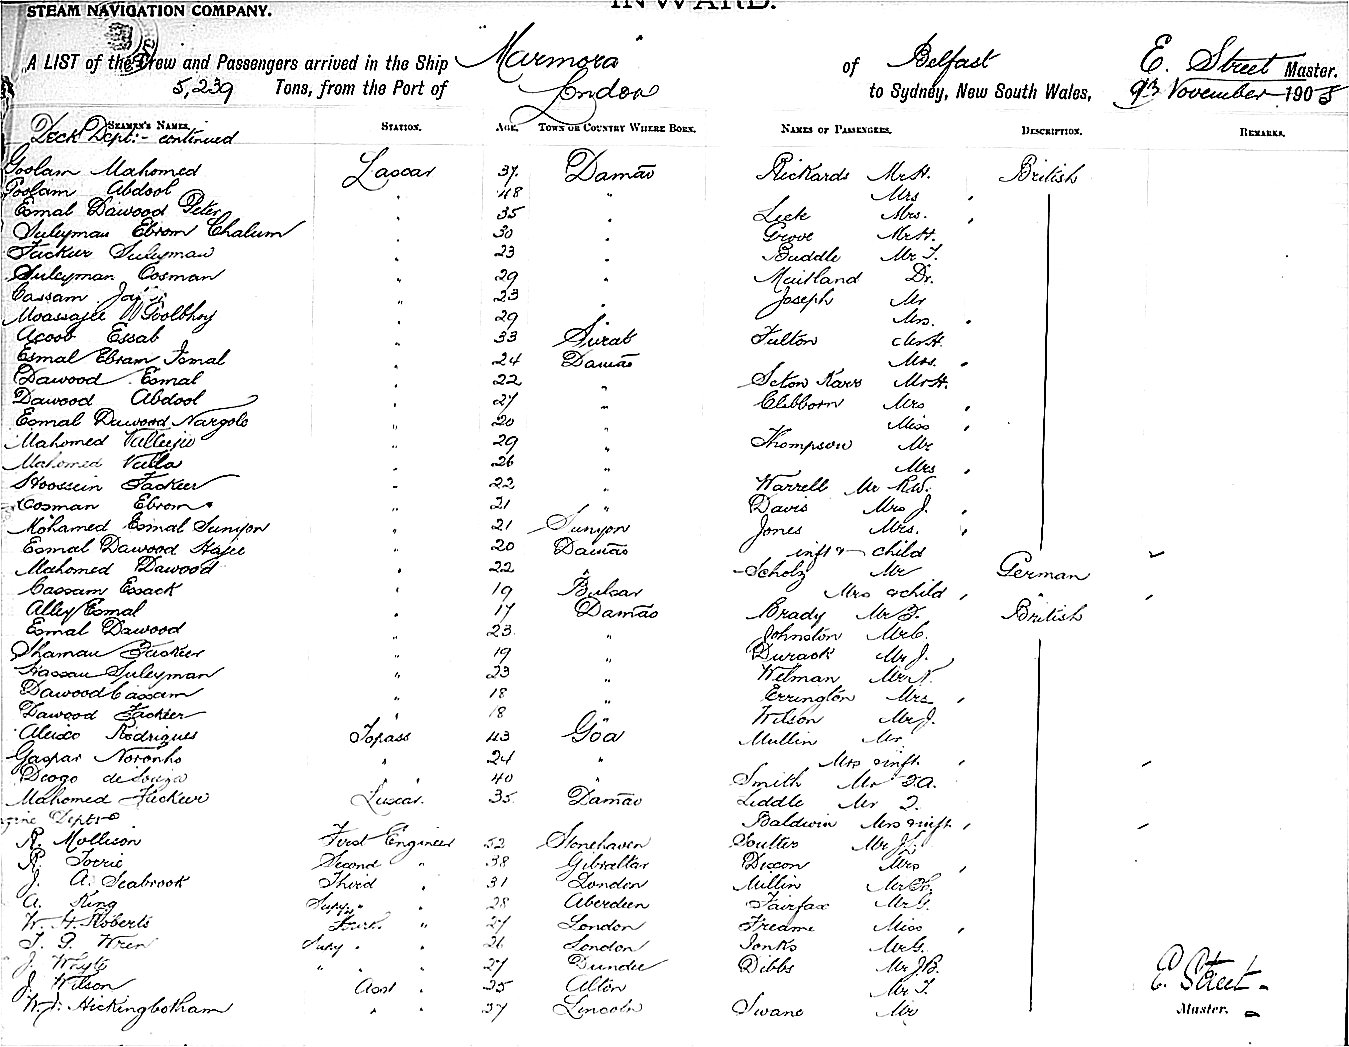 INWARD.
STEAM NAVIGATION COMPANY.
A LIST of the Crew and Passengers arrived in the Ship "Marmora" of Belfast E. Street Master.
5,239 Tons, from the Port of London to Sydney, New South Wales, November 190
SEAMEN'S NAMES. STATION. AGE. TOWN OR COUNTRY WHERE BORN. NAMES OF PASSENGERS. DESCRIPTION. REMARKS.
Deck Dept:- continued
Goolam Mahomed Lascar 37 Damão Rickards Mr H. British
Goolam Abdool " 48 " Mrs "
Esmal Dawood Peter " 35 " Leek Mrs. "
Suleyman Ebrom Chalum " 30 " Grove Mr H.
Fackeer Suleyman " 23 " Buddle Mr T.
Suleyman Cosman " 29 " Maitland Dr.
Cassam " 23 " Joseph Mr
" 29 " Mrs. "
Acoob Essab " 33 Surat Fulton Mr H.
Esmal Ebram Ismal " 24 Damão Mrs. "
Dawood Esmal " 22 " Seton Karr Mr H.
Dawood Abdool " 27 " Clibborn Mrs "
Esmal Dawood Nargolo " 20 " Miss "
Mahomed " 29 " Thompson Mr
Mahomed Valla " 26 " Mrs "
Hoossein Fackeer " 22 " Warrell Mr R.W.
Cosman Ebrom " 21 " Davis Mrs J. "
Mohamed Esmal Sunyon " 21 Sunyon Jones Mrs. "
Esmal Dawood Hajee " 20 Damão inft & child
Mahomed Dawood " 22 " Scholz Mr German
Cassam Essack " 19 Bulsar Mrs & child " "
Alley Esmal " 17 Damão Brady Mr F. British
Esmal Dawood " 23 " Johnston Mr C.
Shaman Fackeer " 19 " Durack Mr J.
Hassan Suleyman " 23 " Welman Mr N.
Dawood Cassam " 18 " Errington Mrs "
Dawood Fackeer " 18 " Wilson Mr J.
Aleixo Rodrigues Topass 43 Goa Mullin Mr
Gaspar Noronho " 24 " Mrs & inft "
Diogo de Souza " 40 " Smith Mr
Mahomed Fackeer Lascar. 35 Damão Liddle Mr
Engine Dept:- Baldwin Mrs & inft "
R. Mollison First Engineer 52 Stonehaven Soutter Mr
R. Second " 38 Gibraltar Dixon Mrs "
J. A. Seabrook Third " 31 London Millin Mr
A. King Supy " 28 Aberdeen Fairfax Mr G.
W. H. Roberts " 27 London Freame Miss "
T. P. Wren Supy " 26 London Jonks Mr G.
J. Whyte " " 27 Dundee Dibbs Mr J.B.
J. Wilson Asst " 25 Alton Mr T. E. Street
W. J. Hickingbotham " " 37 Lincoln Swane Mr Master.